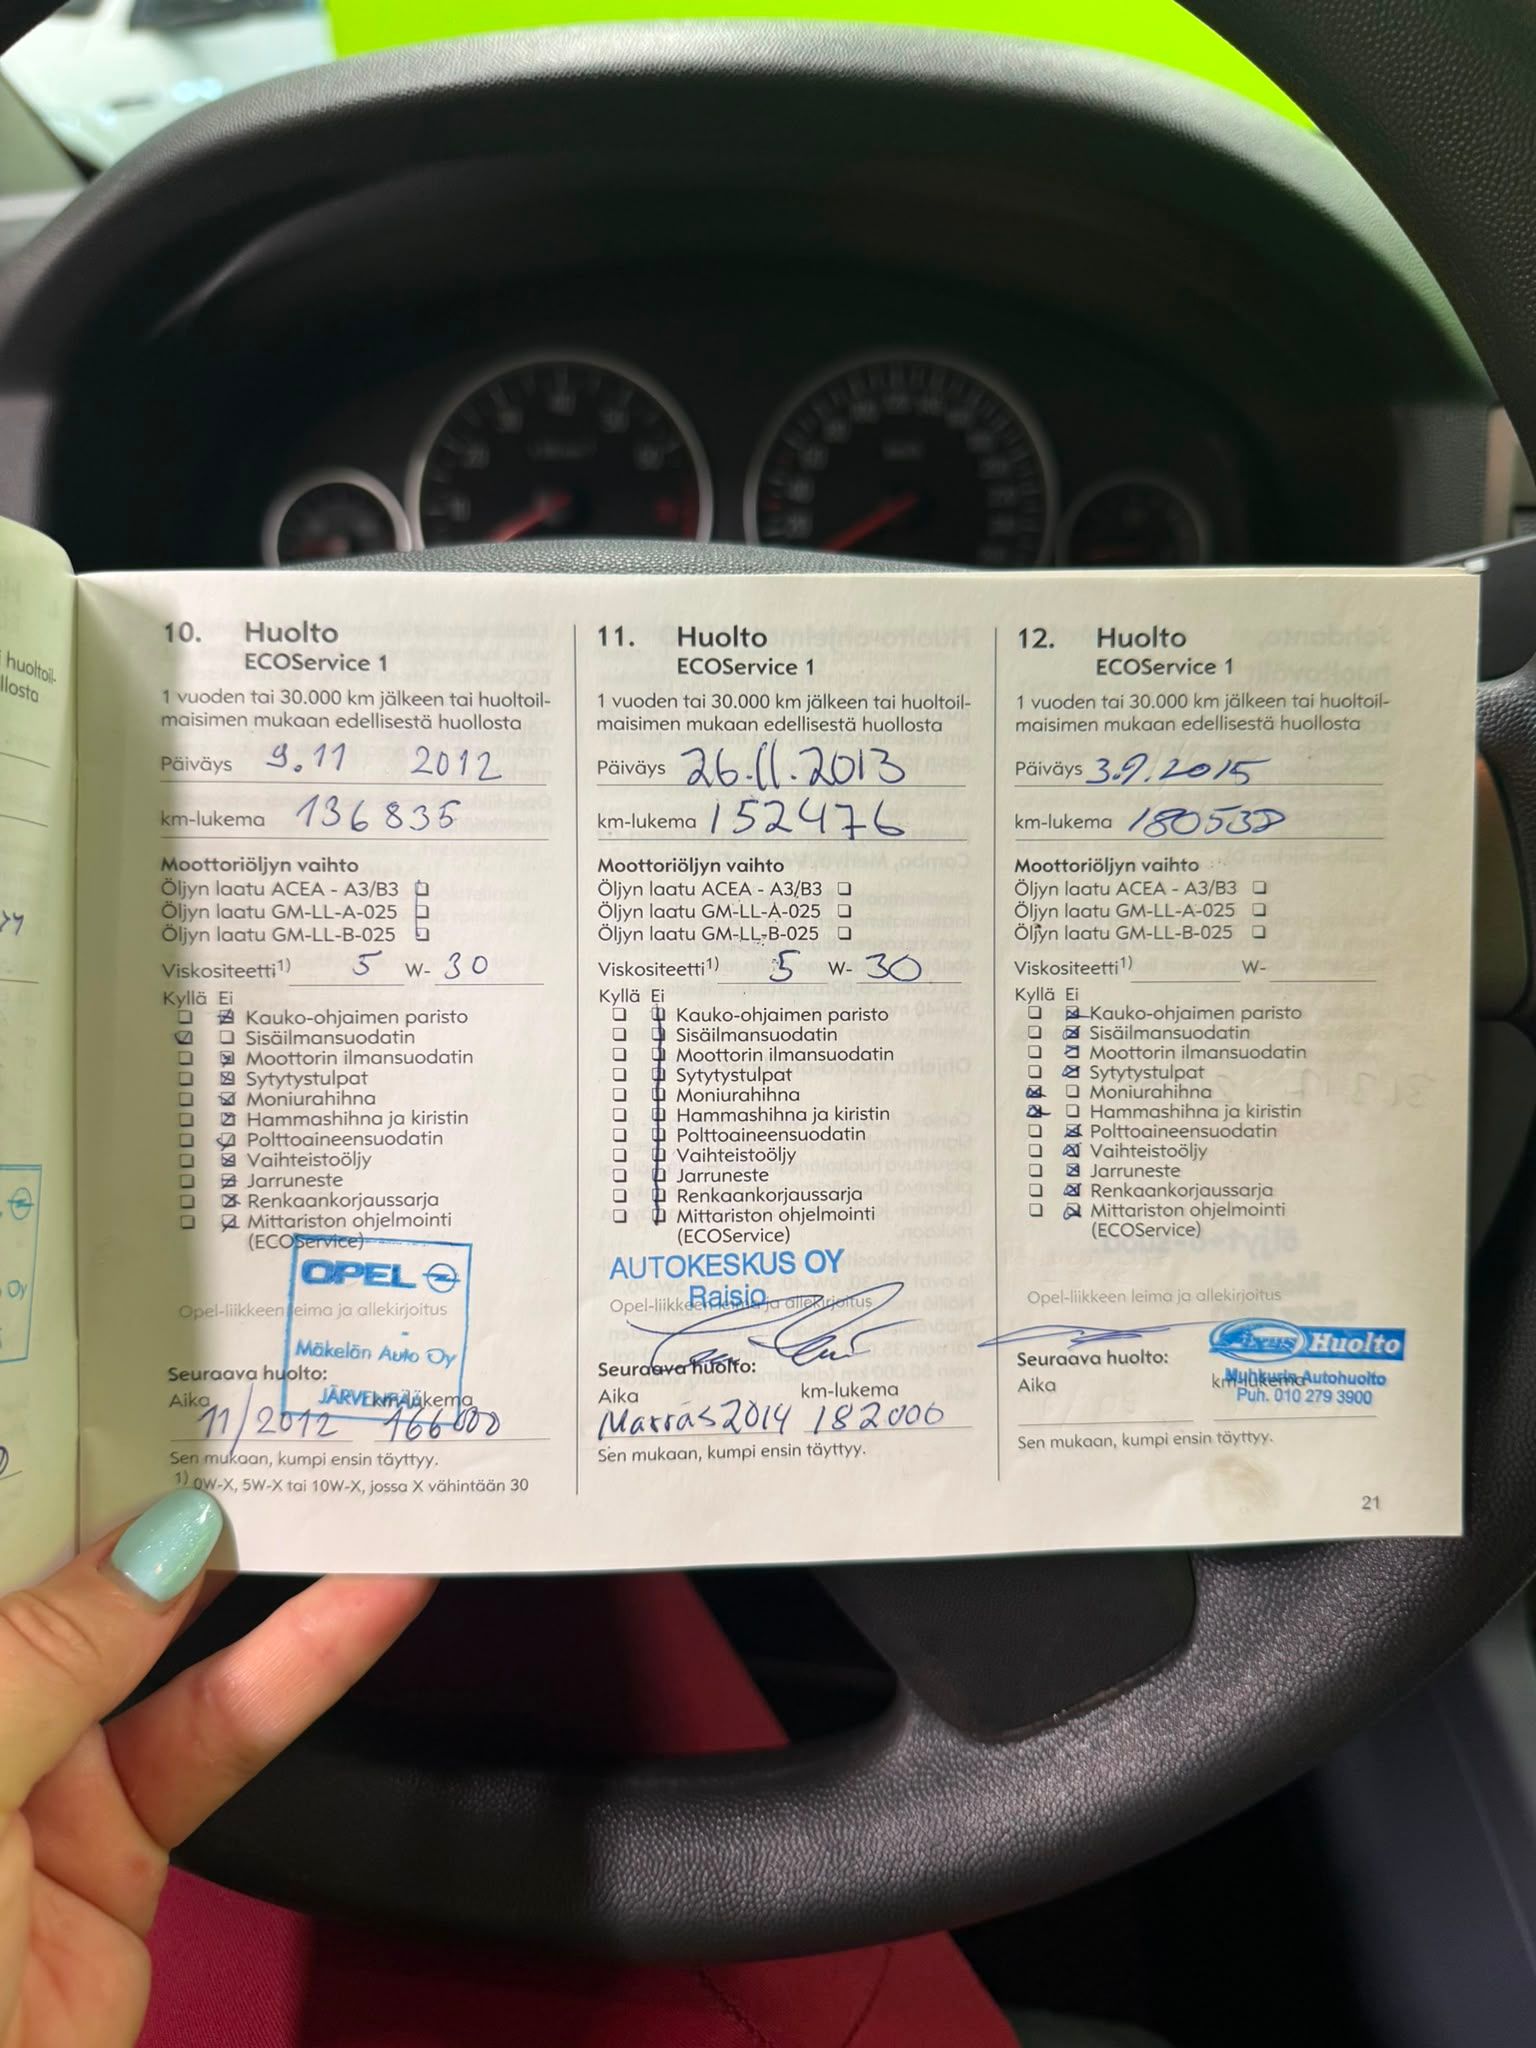 huoltoil-
llosta
Oy
10. Huolto
ECOService 1
1 vuoden tai 30.000 km jälkeen tai huoltoil-
maisimen mukaan edellisestä huollosta
Päiväys 9.11 2012
km-lukema 136835
Moottoriöljyn vaihto
Öljyn laatu ACEA - A3/B3
Öljyn laatu GM-LL-A-025
Öljyn laatu GM-LL-B-025
Viskositeetti1) 5 W- 30
Kyllä Ei
Kauko-ohjaimen paristo
Sisäilmansuodatin
Moottorin ilmansuodatin
Sytytystulpat
Moniurahihna
Hammashihna ja kiristin
Polttoaineensuodatin
Vaihteistoöljy
Jarruneste
Renkaankorjaussarja
Mittariston ohjelmointi
(ECOService)
OPEL
Opel-liikkeen leima ja allekirjoitus
Mäkelän Auto Oy
JÄRVENPÄÄ
Seuraava huolto:
Aika km-lukema
11/2012 166000
Sen mukaan, kumpi ensin täyttyy.
1) 0W-X, 5W-X tai 10W-X, jossa X vähintään 30
11. Huolto
ECOService 1
1 vuoden tai 30.000 km jälkeen tai huoltoil-
maisimen mukaan edellisestä huollosta
Päiväys 26.11.2013
km-lukema 152476
Moottoriöljyn vaihto
Öljyn laatu ACEA - A3/B3
Öljyn laatu GM-LL-A-025
Öljyn laatu GM-LL-B-025
Viskositeetti1) 5 W- 30
Kyllä Ei
Kauko-ohjaimen paristo
Sisäilmansuodatin
Moottorin ilmansuodatin
Sytytystulpat
Moniurahihna
Hammashihna ja kiristin
Polttoaineensuodatin
Vaihteistoöljy
Jarruneste
Renkaankorjaussarja
Mittariston ohjelmointi
(ECOService)
AUTOKESKUS OY
Raisio
Opel-liikkeen leima ja allekirjoitus
Seuraava huolto:
Aika km-lukema
Marras 2014 182000
Sen mukaan, kumpi ensin täyttyy.
12. Huolto
ECOService 1
1 vuoden tai 30.000 km jälkeen tai huoltoil-
maisimen mukaan edellisestä huollosta
Päiväys 3.9.2015
km-lukema 180538
Moottoriöljyn vaihto
Öljyn laatu ACEA - A3/B3
Öljyn laatu GM-LL-A-025
Öljyn laatu GM-LL-B-025
Viskositeetti1) W-
Kyllä Ei
Kauko-ohjaimen paristo
Sisäilmansuodatin
Moottorin ilmansuodatin
Sytytystulpat
Moniurahihna
Hammashihna ja kiristin
Polttoaineensuodatin
Vaihteistoöljy
Jarruneste
Renkaankorjaussarja
Mittariston ohjelmointi
(ECOService)
Opel-liikkeen leima ja allekirjoitus
Huolto
Seuraava huolto:
Autohuolto
Aika km-lukema
Puh. 010 279 3900
Sen mukaan, kumpi ensin täyttyy.
21